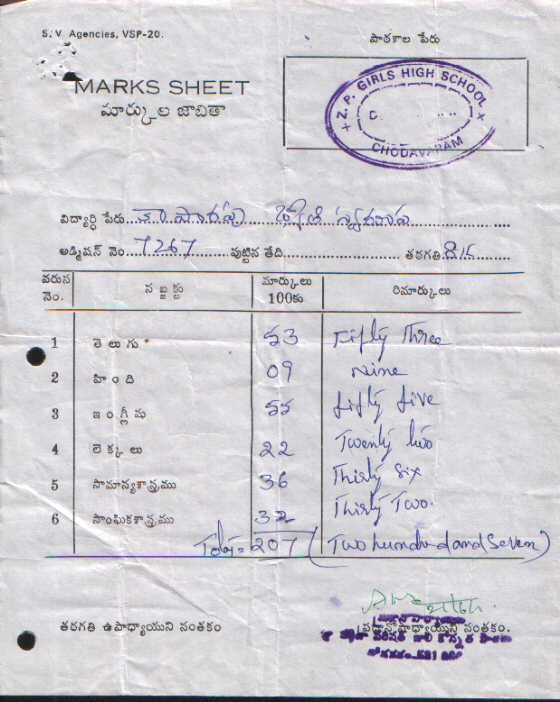 S. V. Agencies, VSP-20.
పాఠశాల పేరు
MARKS SHEET
మార్కుల జాబితా
Z. P. GIRLS HIGH SCHOOL
CHODAVARAM
విద్యార్థి పేరు
అడ్మిషన్ నెం. 7267 పుట్టిన తేది తరగతి 8
వరుస నెం. సబ్జక్టు మార్కులు 100కు రిమార్కులు
1 తెలుగు 53 Fifty Three
2 హింది 09 Nine
3 ఇంగ్లీషు 55 fifty five
4 లెక్కలు 22 Twenty two
5 సామాన్యశాస్త్రము 36 Thirty Six
6 సాంఘికశాస్త్రము 32 Thirty Two.
Total= 207 (Two hundred and Seven)
తరగతి ఉపాధ్యాయుని సంతకం ప్రధానోపాధ్యాయుని సంతకం.